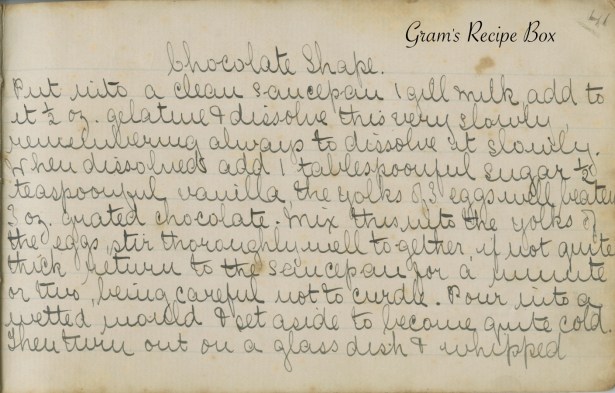 41
Gram's Recipe Box
Chocolate Shape.
Put into a clean saucepan 1 gill milk add to
it ½ oz. gelatine & dissolve this very slowly,
remembering always to dissolve it slowly.
When dissolved add 1 tablespoonful sugar ½
teaspoonful vanilla, the yolks of 3 eggs well beaten
3 oz. grated chocolate. Mix this into the yolks of
the eggs, stir thoroughly well together, if not quite
thick return to the saucepan for a minute
or two, being careful not to curdle. Pour into a
wetted mould & set aside to become quite cold.
Then turn out on a glass dish & whipped